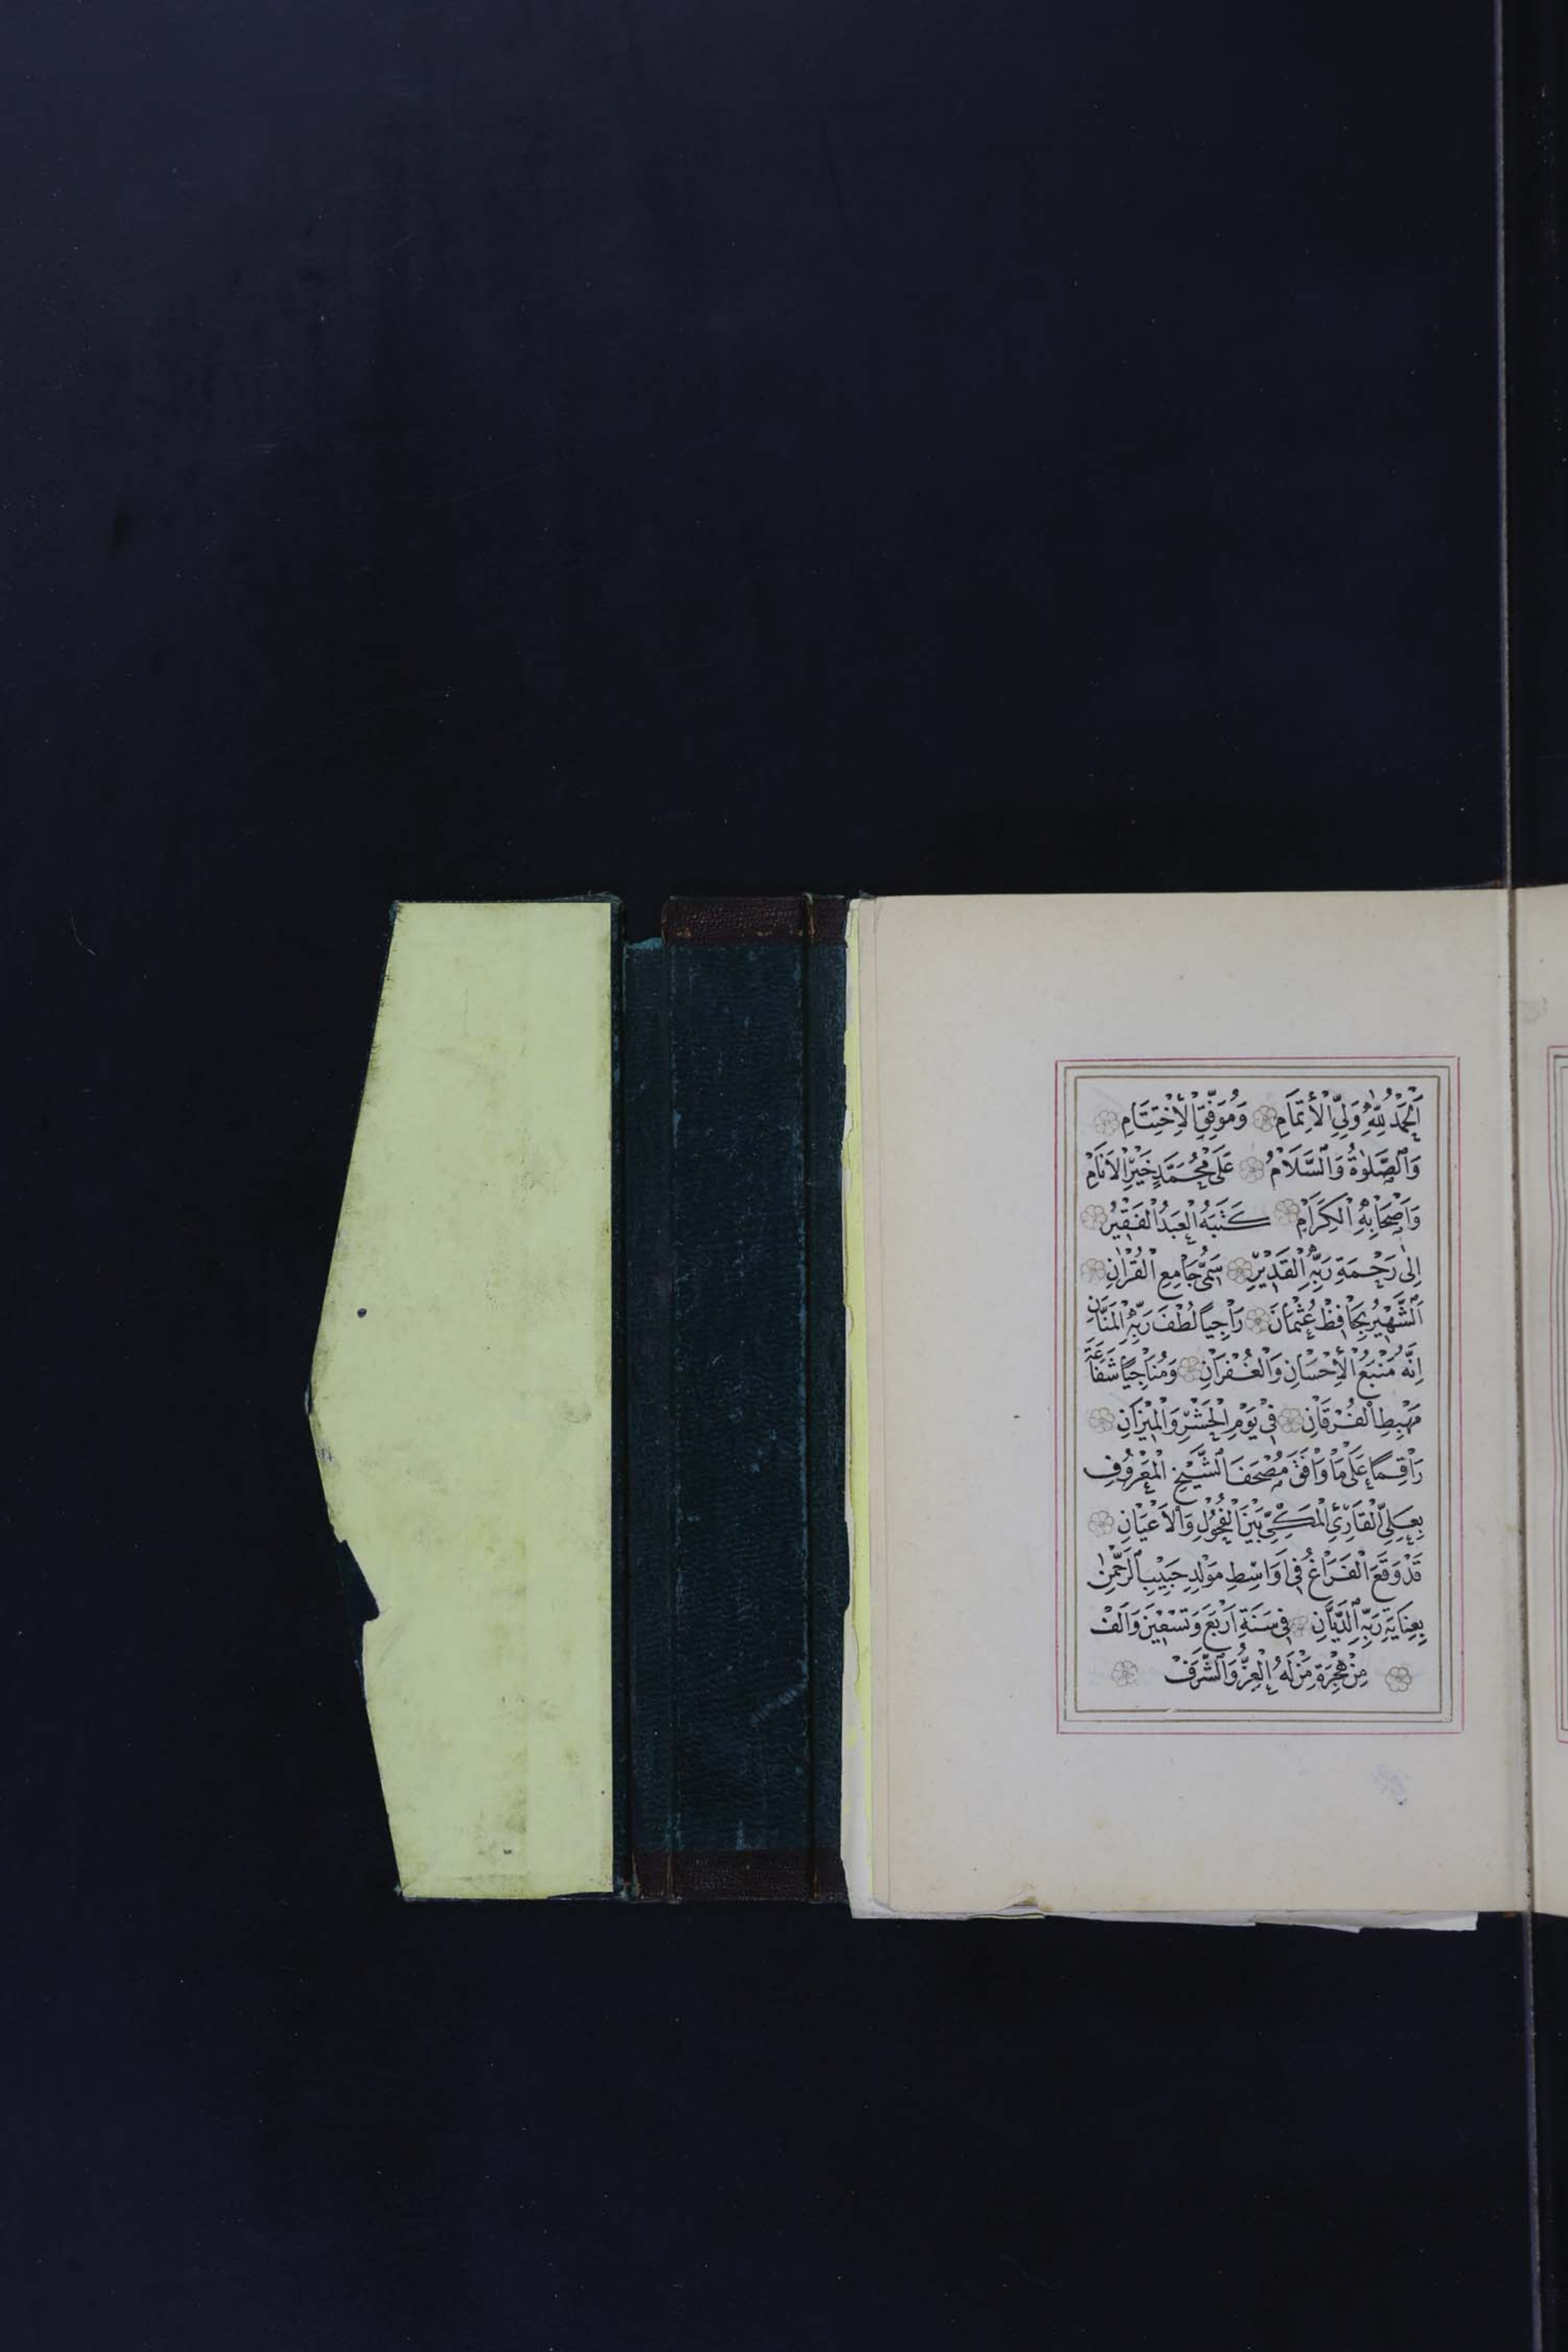 اَلْحَمْدُ لِلّٰهِ وَلِيِّ الْاِتْمَامِ وَمُوَفِّقِ الْاِخْتِتَامِ
وَالصَّلٰوةُ وَالسَّلَامُ عَلٰى مُحَمَّدٍ خَيْرِ الْاَنَامِ
وَاَصْحَابِهِ الْكِرَامِ كَتَبَهُ الْعَبْدُ الْفَقِيْرُ
اِلٰى رَحْمَةِ رَبِّهِ الْقَدِيْرِ سَمِيُّ جَامِعِ الْقُرْاٰنِ
اَلشَّهِيْرُ بِحَافِظْ عُثْمَانَ رَاجِيًا لُطْفَ رَبِّهِ الْمَنَّانِ
اِنَّهُ مَنْبَعُ الْاِحْسَانِ وَالْغُفْرَانِ وَمُنَاجِيًا شَفَاعَةَ
مَهْبِطِ الْفُرْقَانِ فِيْ يَوْمِ الْحَشْرِ وَالْمِيْزَانِ
رَاقِمًا عَلٰى مَا وَافَقَ مُصْحَفَ الشَّيْخِ الْمَعْرُوفِ
بِعَلِيِّ الْقَارِئِ الْمَكِّيِّ بَيْنَ الْفُحُوْلِ وَالْاَعْيَانِ
قَدْ وَقَعَ الْفَرَاغُ فِيْ اَوَاسِطِ مَوْلِدِ حَبِيْبِ الرَّحْمٰنِ
بِعِنَايَةِ رَبِّهِ الدَّيَّانِ فِيْ سَنَةِ اَرْبَعَ وَتِسْعِيْنَ وَاَلْفْ
مِنْ هِجْرَةِ مَنْ لَهُ الْعِزُّ وَالشَّرَفْ